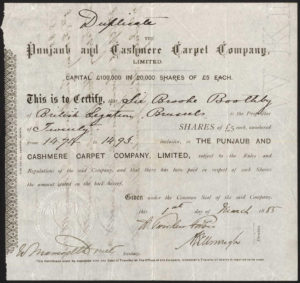 Duplicate
TO THE
Punjaub and Cashmere Carpet Company,
LIMITED.
CAPITAL £100,000 IN 20,000 SHARES OF £5 EACH.
This is to Certify, that Sir Brooke Boothby
of British Legation, Brussels is the Proprietor
of Twenty SHARES of £5 each, numbered
from 1474 to 1493 inclusive, in THE PUNJAUB AND
CASHMERE CARPET COMPANY, LIMITED, subject to the Rules and
Regulations of the said Company, and that there has been paid in respect of each Shares
the amount stated on the back hereof.
Given under the Common Seal of the said Company,
this day of March 1885
Secretary.